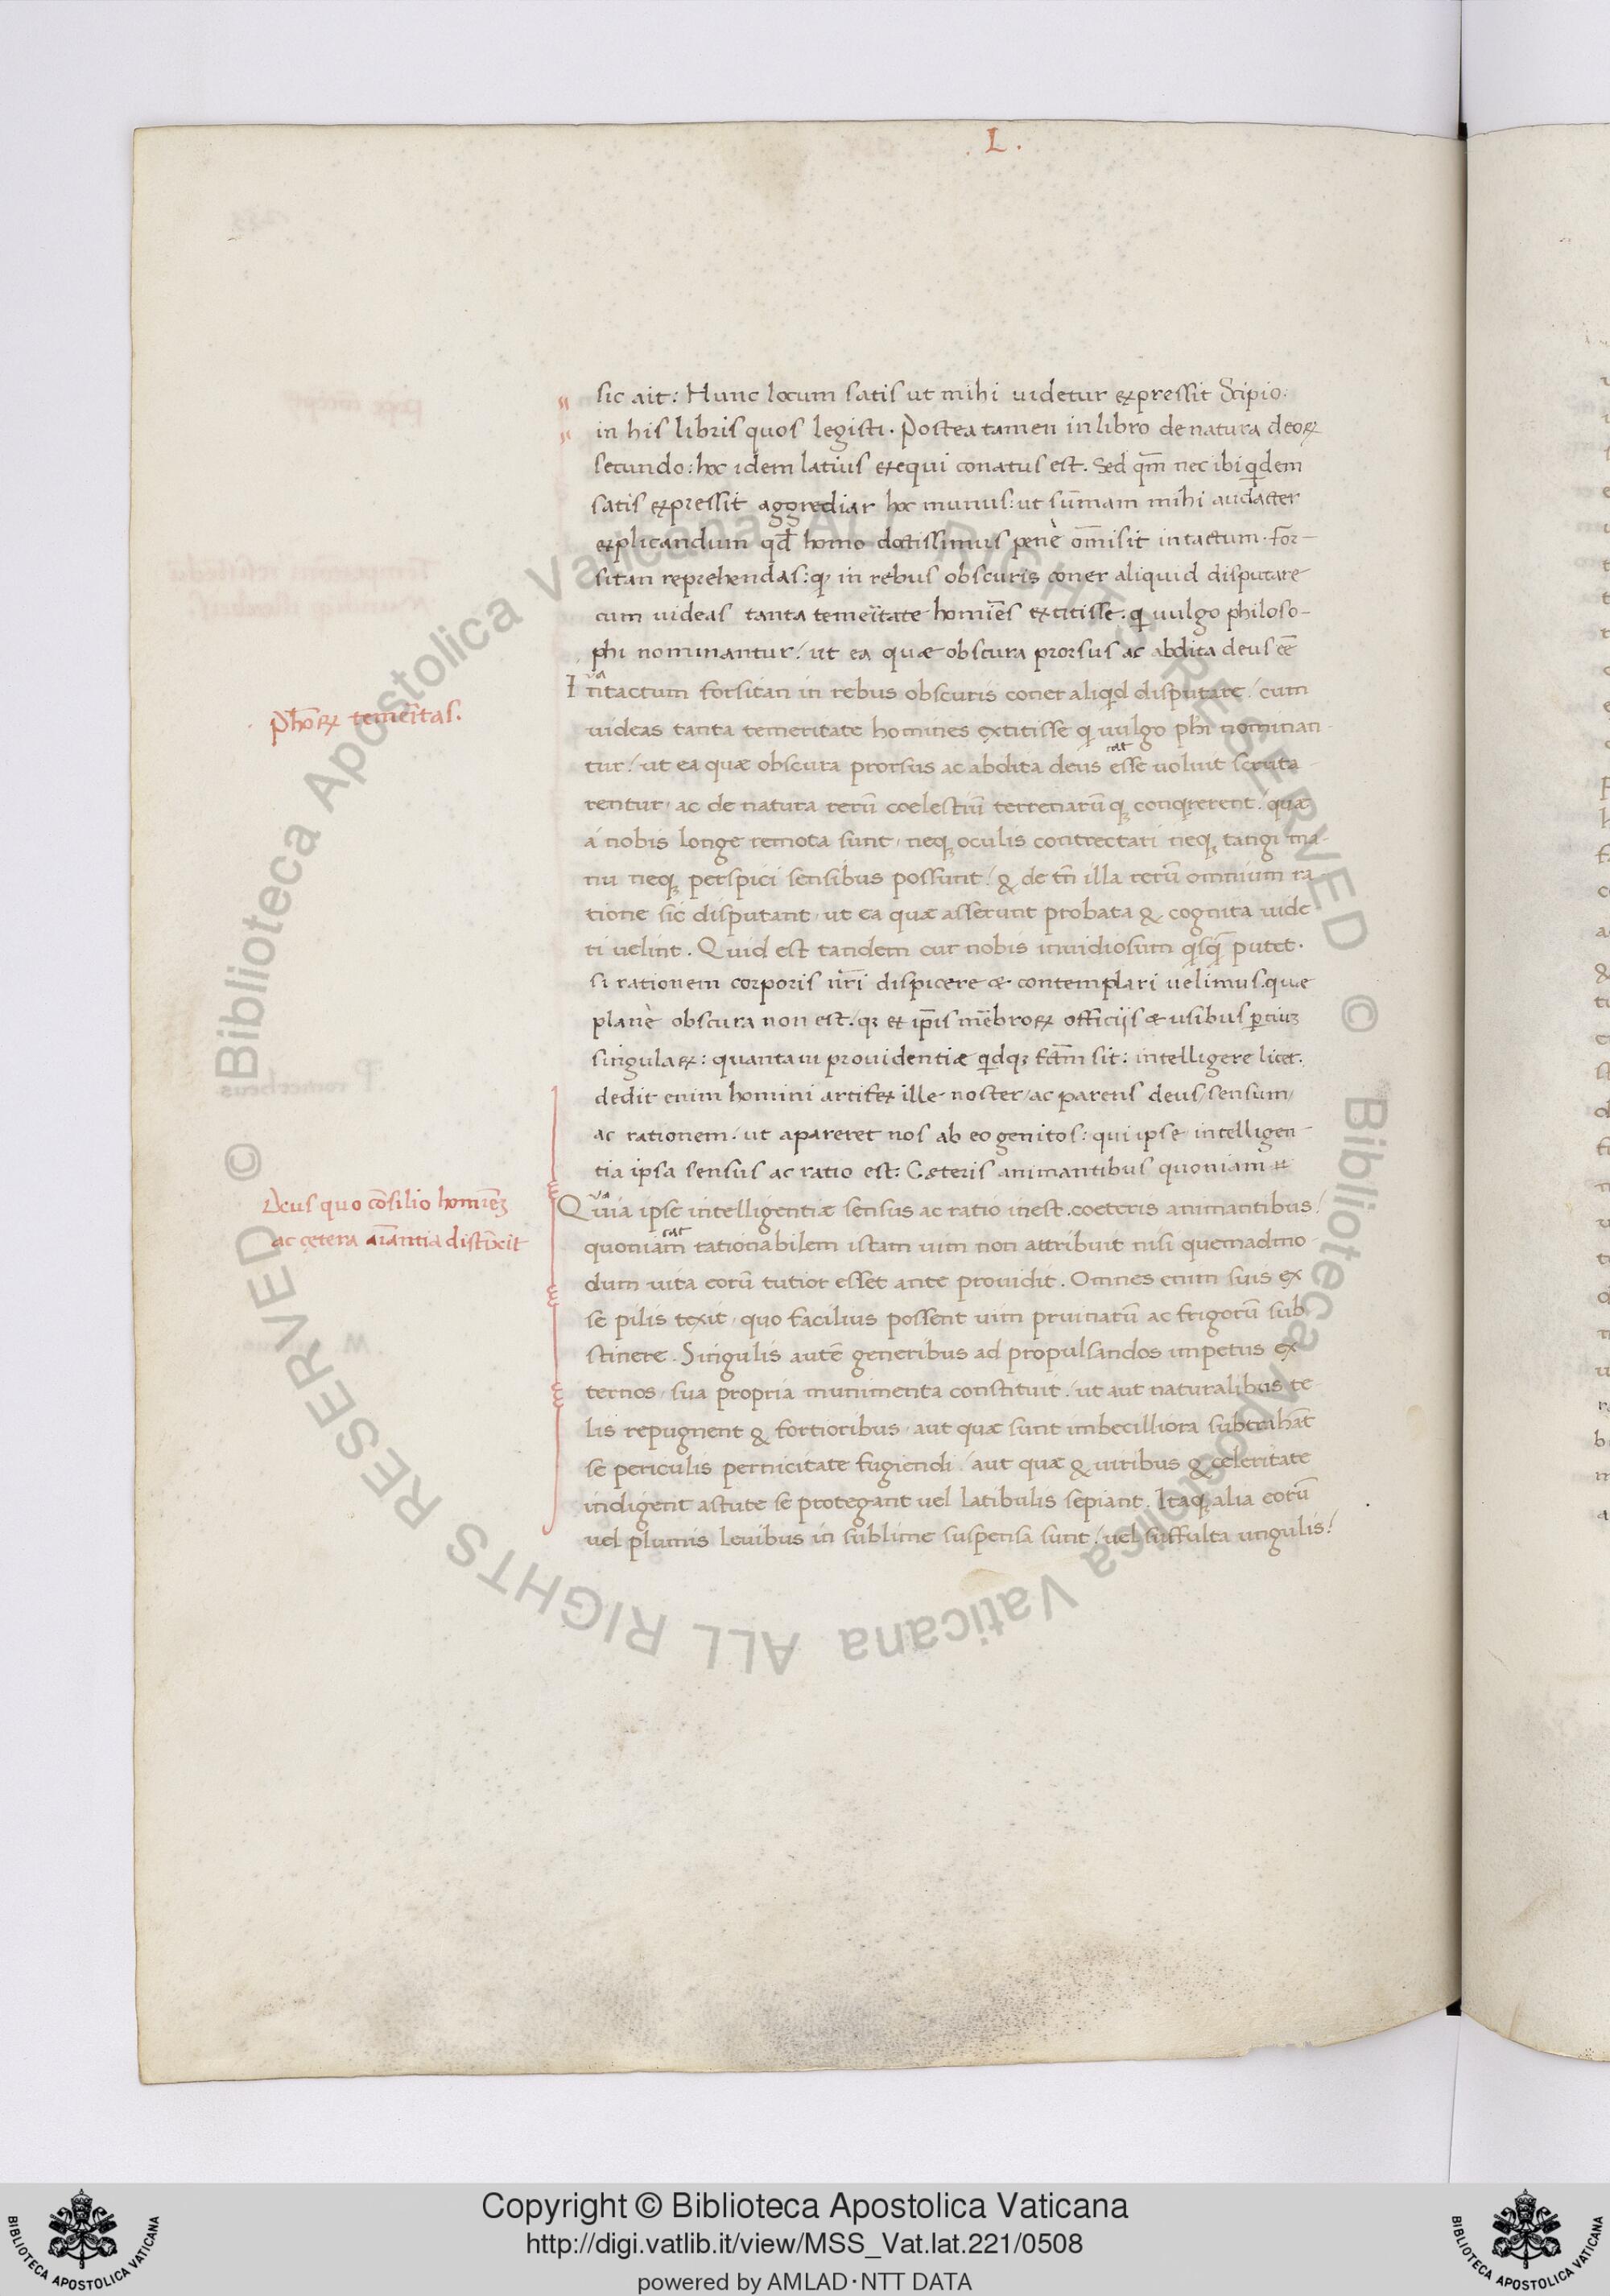 . L .
sic ait: Hunc locum satis ut mihi uidetur expressit Scipio:
in his libris quos legisti. Postea tamen in libro de natura deoꝝ
secundo: hoc idem latius exequi conatus est. Sed qm̄ nec ibi qͥdem
satis expressit aggrediar hoc munus: ut sūmam mihi audacter
explicandum qđ homo doctissimus penè om̄isit intactum. For-
sitan reprehendas: qꝫ in rebus obscuris coner aliquid disputare
cum uideas tanta temeïtate homiēs extitisse. qͥ uulgo philoso-
phi nominantur/ ut ea quæ obscura prorsus ac abdita deus eē
va
Intactum forsitan in rebus obscuris coner aliqͥd disputare/ cum
Pho̅ꝝ temeïtas.
uideas tanta temeritate homines extitisse qͥ uulgo phi̅ nominan-
cat
tur/ ut ea quæ obscura prorsus ac abdita deus esse uoluit scruta-
rentur, ac de natura rerū coelestiū terrenarūqꝫ conqͥrerent/ quæ
á nobis longe remota sunt, neqꝫ oculis contrectari neqꝫ tangi ma-
nu neqꝫ perspici sensibus possunt/ & de tn̄ illa rerū omnium ra-
tione sic disputant, ut ea quæ asserunt probata & cognita uide
ri uelint. Quid est tandem cur nobis inuidiosum qͥsqͣ̄ putet.
si rationem corporis nr̄i dispicere & contemplari uelimus. quæ
planè obscura non est. qꝫ et ip̄is mēbroꝝ officiĳs & usibus ꝑtiuꝫ
singulaꝝ: quanta ui prouidentiæ qͥdqꝫ fctm̄ sit: intelligere licet.
dedit enim homini artifex ille noster/ ac parens deus/ sensum/
ac rationem. ut apareret nos ab eo genitos: qui ipse intelligen-
tia ipsa sensus ac ratio est: Cæteris animantibus quoniam
va
Deus quo cōsilio homiēꝫ
Quia ipse intelligentiæ sensus ac ratio inest. coeteris animantibus/
ac cetera aīantia distīxit
cat
quoniam rationabilem istam uim non attribuit nisi quemadmo
dum uita eorū tutior esset ante prouidit. Omnes enim suis ex
se pilis texit, quo facilius possent uim pruinarū ac frigorū sub
stinere. Singulis autē generibus ad propulsandos impetus ex-
ternos, sua propria munimenta constituit, ut aut naturalibus te-
lis repugnent & fortioribus, aut quæ sunt imbecilliora subtrahāt
se periculis pernicitate fugiendi, aut quæ & uiribus & celeritate
indigent astute se protegant uel latibulis sepiant. Itaqꝫ alia eorū
uel plumis leuibus in sublime suspensa sunt/ uel suffulta ungulis/
© Biblioteca Apostolica Vaticana ALL RIGHTS RESERVED © Biblioteca Apostolica Vaticana ALL RIGHTS RESERVED
Copyright © Biblioteca Apostolica Vaticana
http://digi.vatlib.it/view/MSS_Vat.lat.221/0508
powered by AMLAD·NTT DATA
BIBLIOTECA APOSTOLICA VATICANA
BIBLIOTECA APOSTOLICA VATICANA